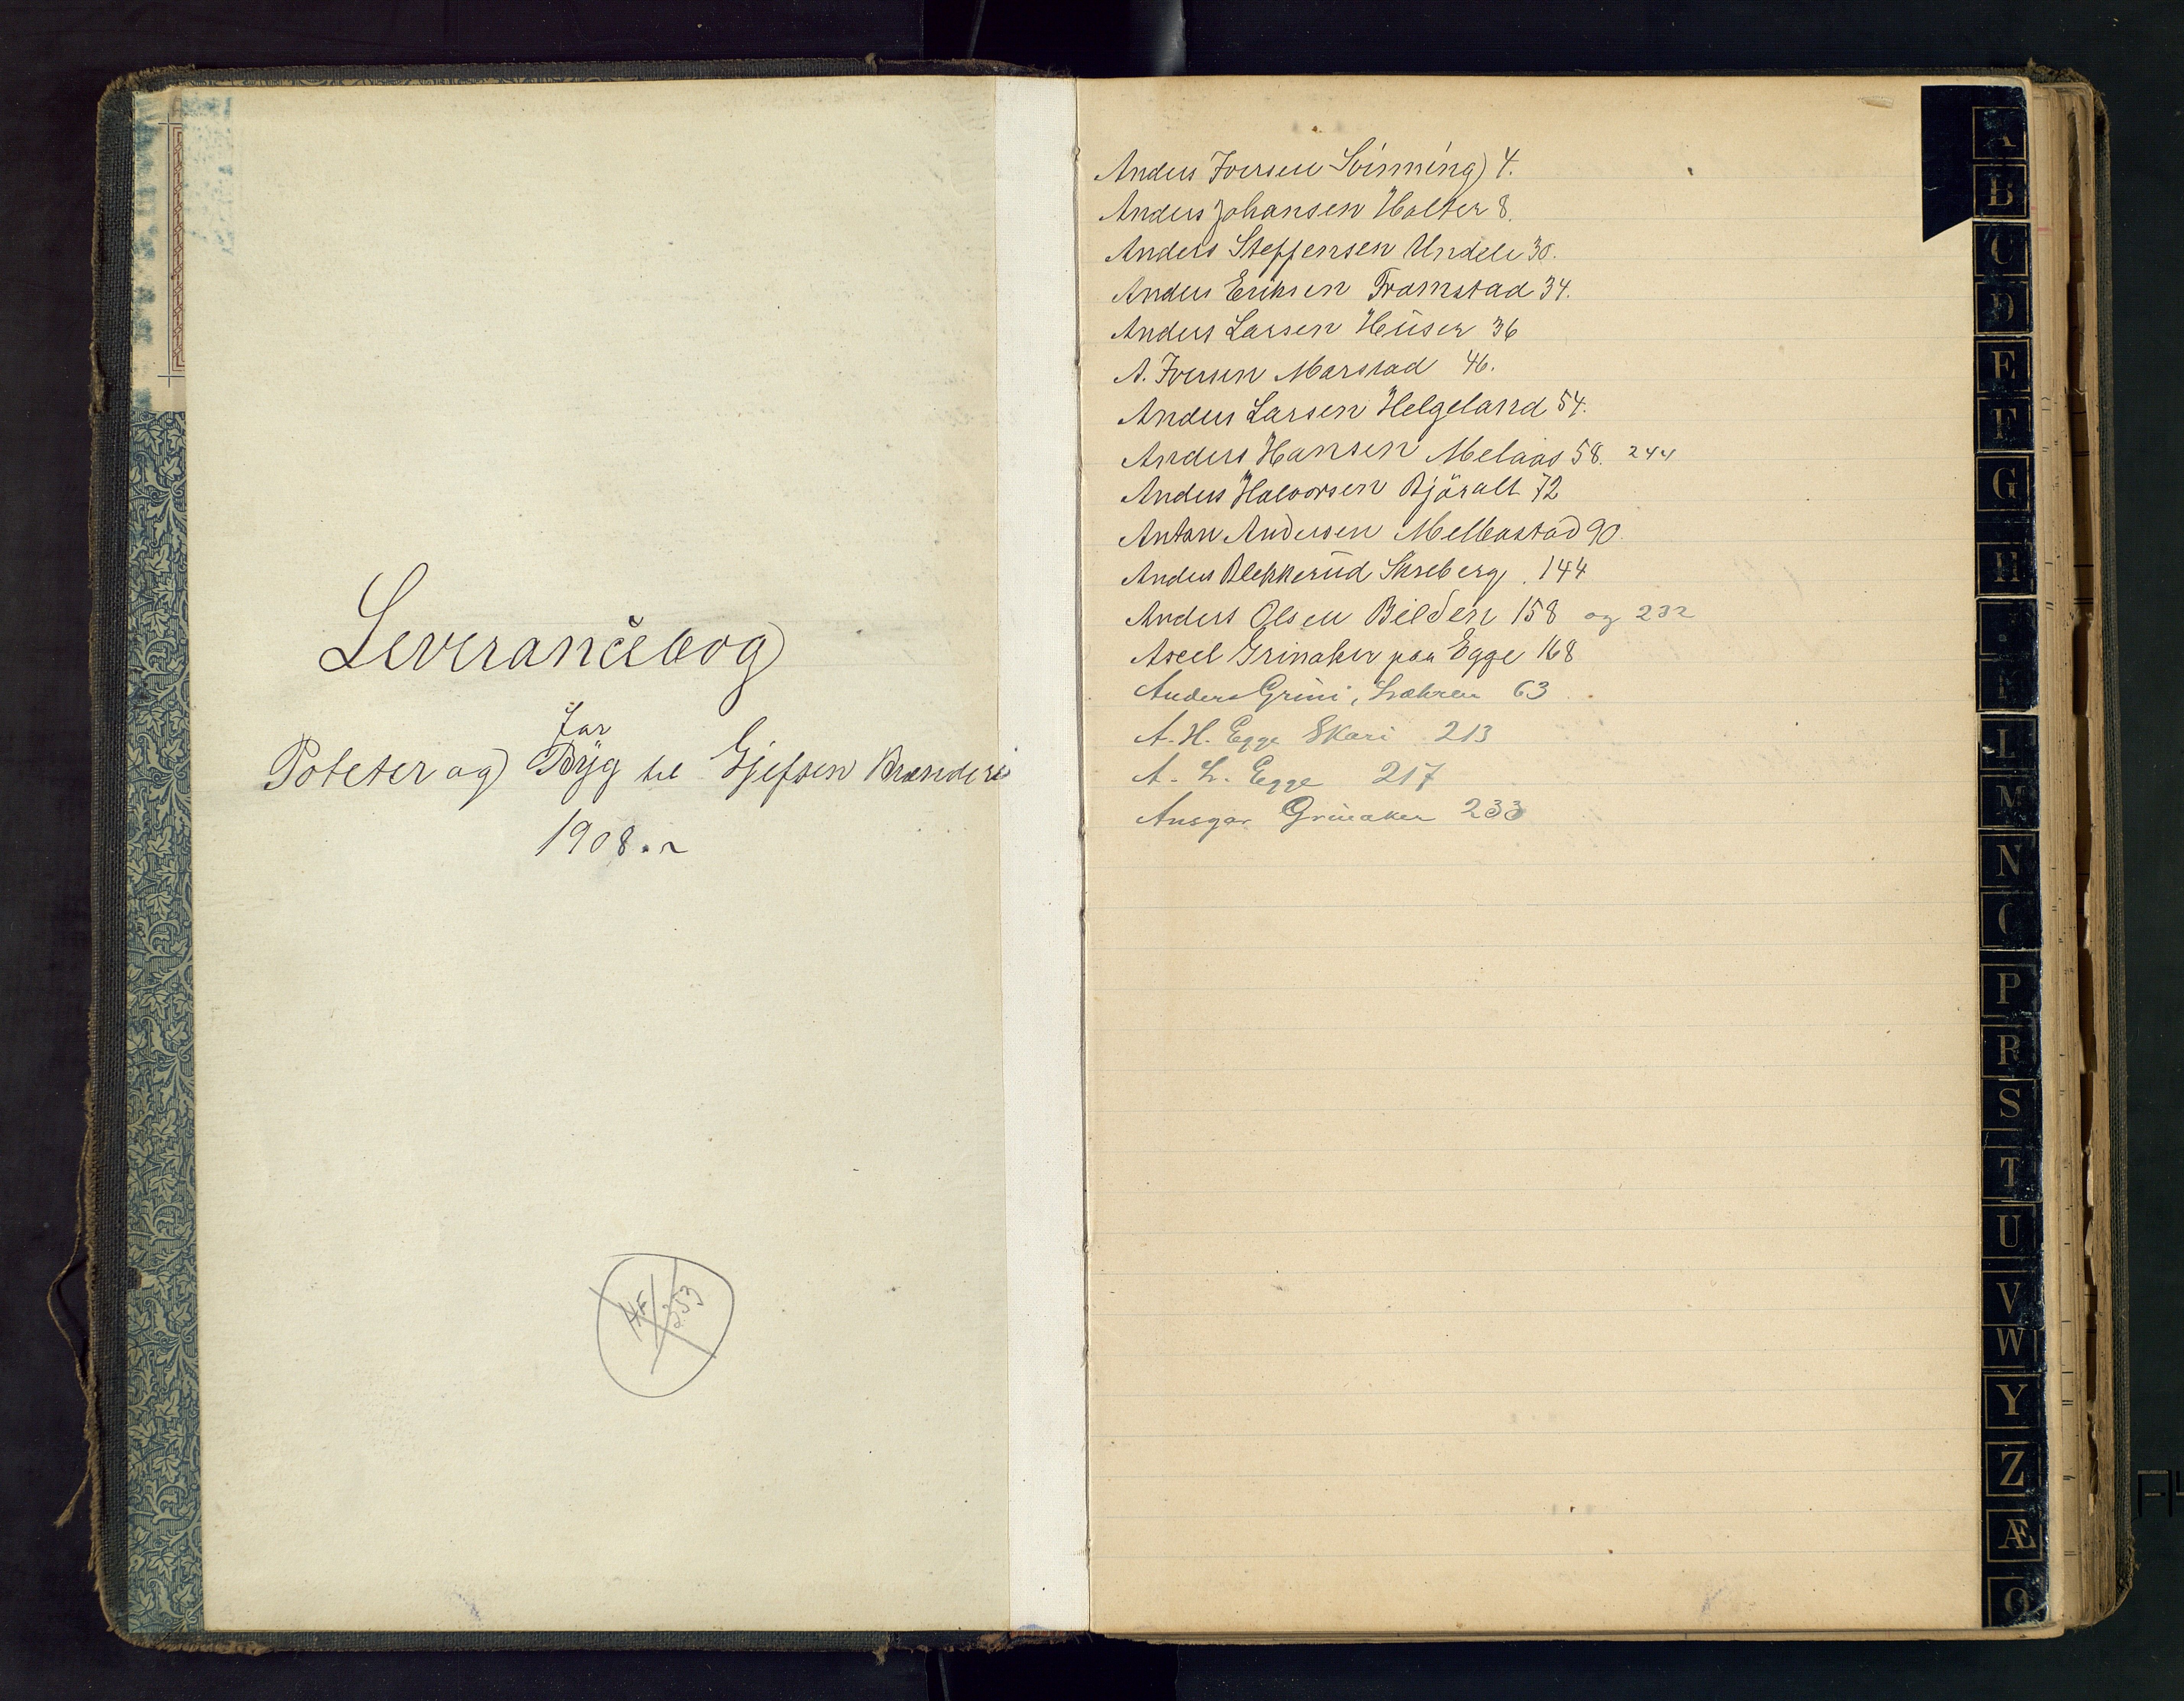 Leverancebog
for
Poteter og Byg til Gjefsen Brænderi
1908.
HF 253
Anders Iversen Svinning 4.
Anders Johansen Holter 8.
Anders Steffensen Undeli 30.
Anders Eriksen Framstad 34.
Anders Larsen Huser 36
A. Iversen Marstad 46.
Anders Larsen Helgeland 54.
Anders Hansen Melaas 58. 244
Anders Halvorsen Björalt 72
Anton Andersen Melbostad 90.
Anders Blekkerud Skreberg. 144
Anders Olsen Bilden 158 og 232
Axel Grinaker paa Egge 168
Anders Grini, 63
A. H. Egge Skari 213
A. L. Egge 217
Ansgar Grinaker 233
A
B
C
D
E
F
G
H
L
M
N
P
R
S
T
U
V
W
Y
Z
Æ